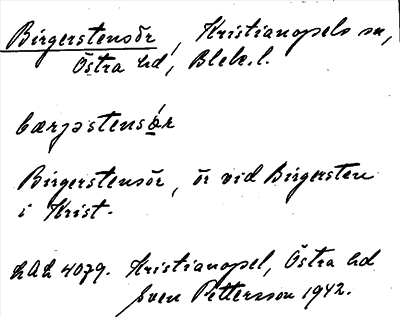 Birgerstensör, Kristianopels sn,
Östra hd, Blek.l.
bærjəstensǿr
Birgerstensör, ör vid Birgersten
i Krist.
LAL 4079. Kristianopel, Östra hd
Sven Pettersson 1942.